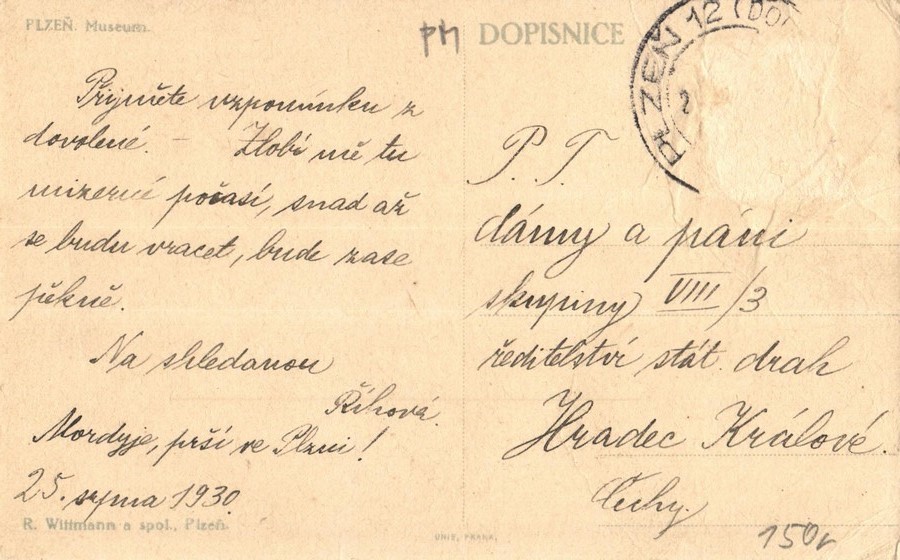 PLZEŇ. Museum.
Přijměte vzpomínku z
dovolené. – Zlobí mě tu
mizerné počasí, snad až
se budu vracet, bude zase
pěkně.
Na shledanou
Říhová.
Mordyje, prší ve Plzni!
25. srpna 1930.
R. Wittmann a spol., Plzeň.
DOPISNICE
PLZEŇ 12 (DO
2
P. T.
dámy a páni
skupiny VIII/3
ředitelství stát. drah
Hradec Králové.
Čechy.
UNIE, PRAHA.